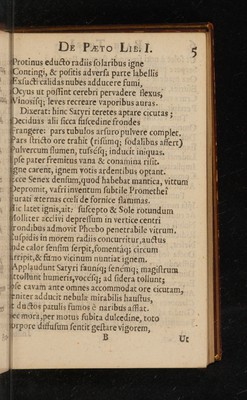 De Pæto Lib. I. 5
Protinus educto radiis solaribus igne
Contingi, & positis adversa parte labellis
Exsucti calidas nubes adducere fumi,
Ocyus ut possint cerebri pervadere flexus,
Vinosisq; leves recreare vaporibus auras.
Dixerat: hinc Satyri teretes aptare cicutas;
Deciduas alii sicca succedine frondes
Frangere: pars tubulos arsuro pulvere complet.
Pars stricto ore trahit (risumq; sodalibus affert)
Pulvereum flumen, tuscisq; inducit iniquas.
pse pater fremitus vana & conamina risit.
gne carent, ignem votis ardentibus optant.
cce Senex densum, quod habebat mantica, vittum
Depromit, vafri inventum subtile Promethei
urati æternas cœli de fornice flammas.
ic latet ignis, ait: suscepto & Sole rotundum
olliter acclivi depressum in vertice centri
rondibus admovit Phœbo penetrabile vitrum.
uspidis in morem radiis concurritur, auctus
nde calor sensim serpit, fomentaq; circum
rripit, & fumo vicinum nuntiat ignem.
Applaudunt Satyri fauniq; senemq; magistrum
ttollunt humeris, vocesq; ad sidera tollunt;
pse cavam ante omnes accommodat ore cicutam,
eniter adducit nebulæ mirabilis haustus,
c ductos patulis fumos è naribus afflat.
ec mora, per motus subita dulcedine, toto
orpore diffusum sentit gestare vigorem,
B Ut